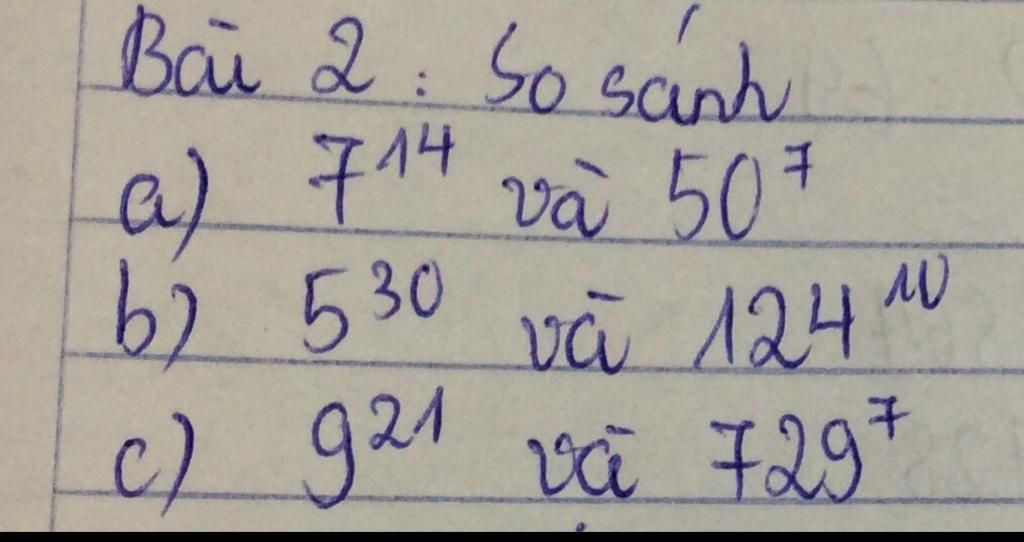 Bài 2 : So sánh
a) 7¹⁴ và 50⁷
b) 5³⁰ và 124¹⁰
c) 9²¹ và 729⁷